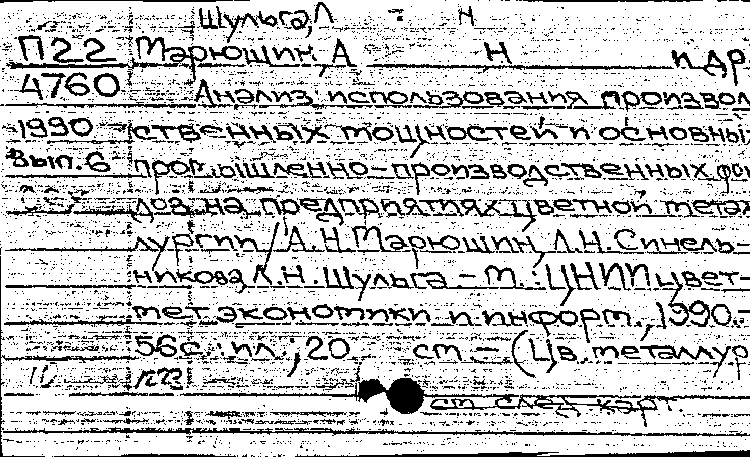 Шульга, Л Н
П22 Марюшин, А Н и др
4760 Анализ использования производ
1990 ственных мощностей и основных
Вып. 6 промышленно-производственных фон
дов на предприятиях цветной метал
лургии / А.Н. Марюшин, Л.Н. Синель-
никова, Л.Н. Шульга - М.: ЦНИИцвет-
мет экономики и информ., 1990.-
56с.: ил.; 20 см - (Цв. металлур
10 п23
см след карт.